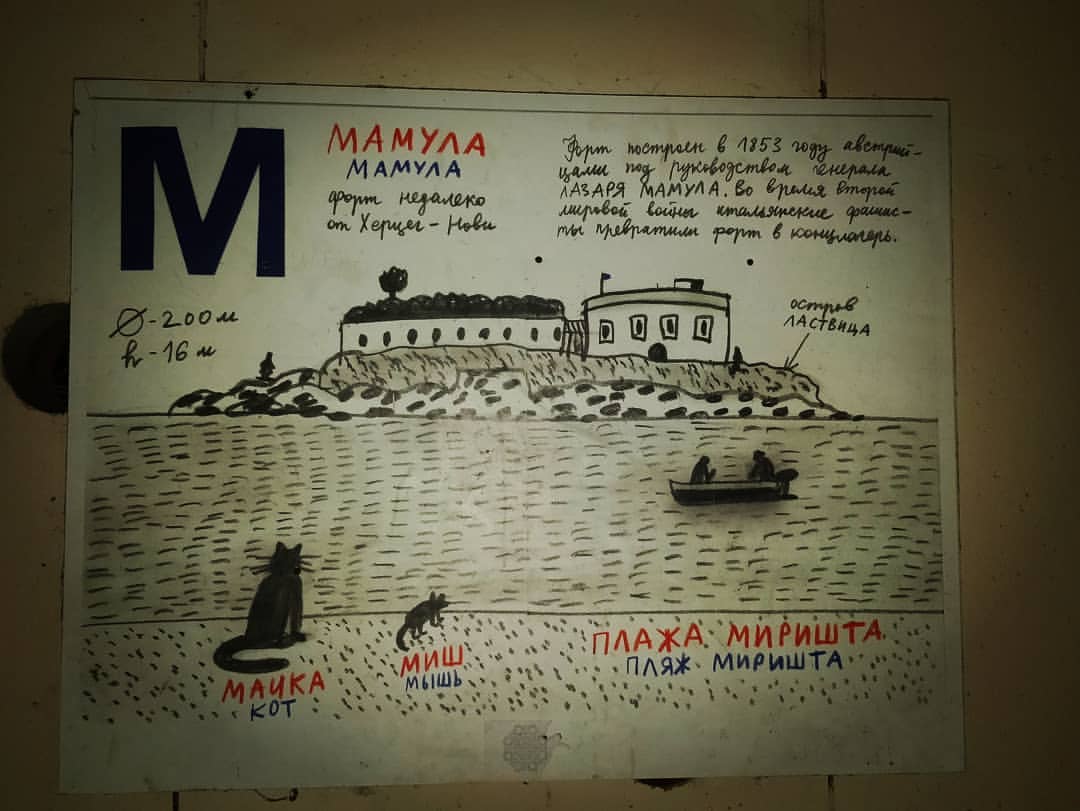 М
МАМУЛА
МАМУЛА
форт недалеко
от Херцег-Нови
Форт построен в 1853 году австрий-
цами под руководством генерала
ЛАЗАРЯ МАМУЛА. Во время второй
мировой войны итальянские фашис-
ты превратили форт в концлагерь.
Ø-200м
h-16 м
остров
ЛАСТВИЦА
МАЧКА
КОТ
МИШ
МЫШЬ
ПЛАЖА МИРИШТА
ПЛЯЖ МИРИШТА